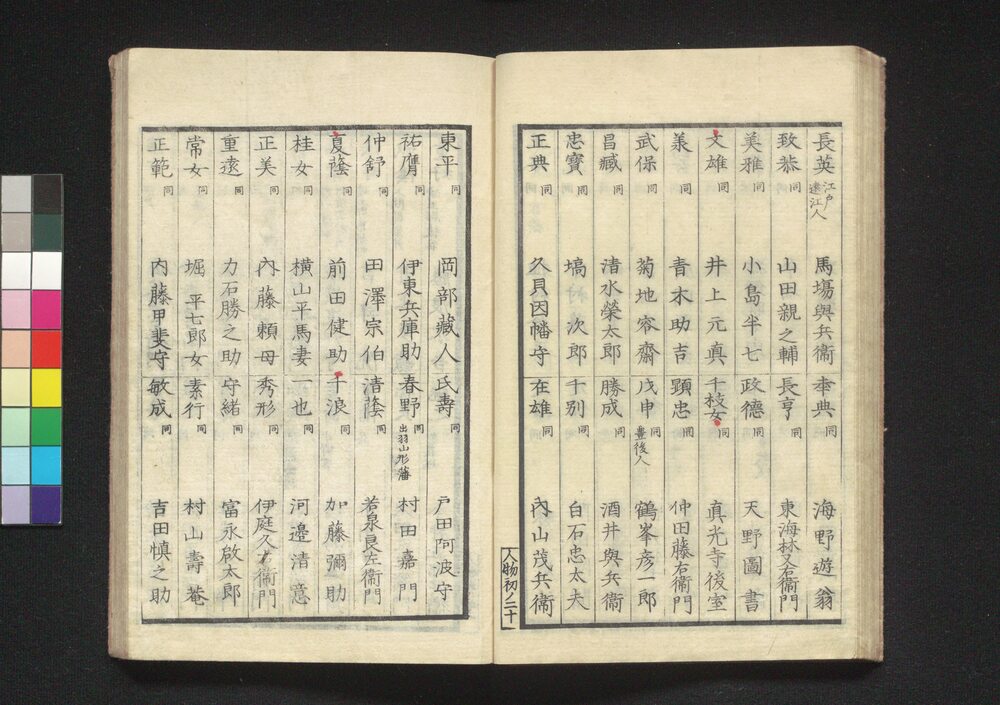 長英 江戸 遠江人 馬塲與兵衞
致恭 同 山田親之輔
美雅 同 小島半七
文雄 同 井上元真
羕 同 青木助吉
武保 同 菊地容齋
昌臧 同 清水榮太郎
忠寶 同 塙次郎
正典 同 久貝因幡守
幸典 同 海野遊翁
長亨 同 東海林又右衞門
政德 同 天野圖書
千枝女 同 真光寺後室
顕忠 同 仲田藤右衞門
戊申 同 豊後人 鶴峯彦一郎
勝成 同 酒井與兵衞
千別 同 白石忠太夫
在雄 同 内山茂兵衞
人物初ノ二十
東平 同 岡部藏人
祐膺 同 伊東兵庫助
仲舒 同 田澤宗伯
夏蔭 同 前田健助
桂女 同 横山平馬妻
正美 同 内藤頼母
重遠 同 力石勝之助
常女 同 堀平七郎女
正範 同 内藤甲斐守
氏壽 同 戸田阿波守
春野 同 出羽山形藩 村田嘉門
清蔭 同 若泉良左衞門
千浪 同 加藤彌助
一也 同 河邉清意
秀形 同 伊庭久右衞門
守緒 同 富永啟太郎
素行 同 村山壽菴
敏成 同 吉田慎之助